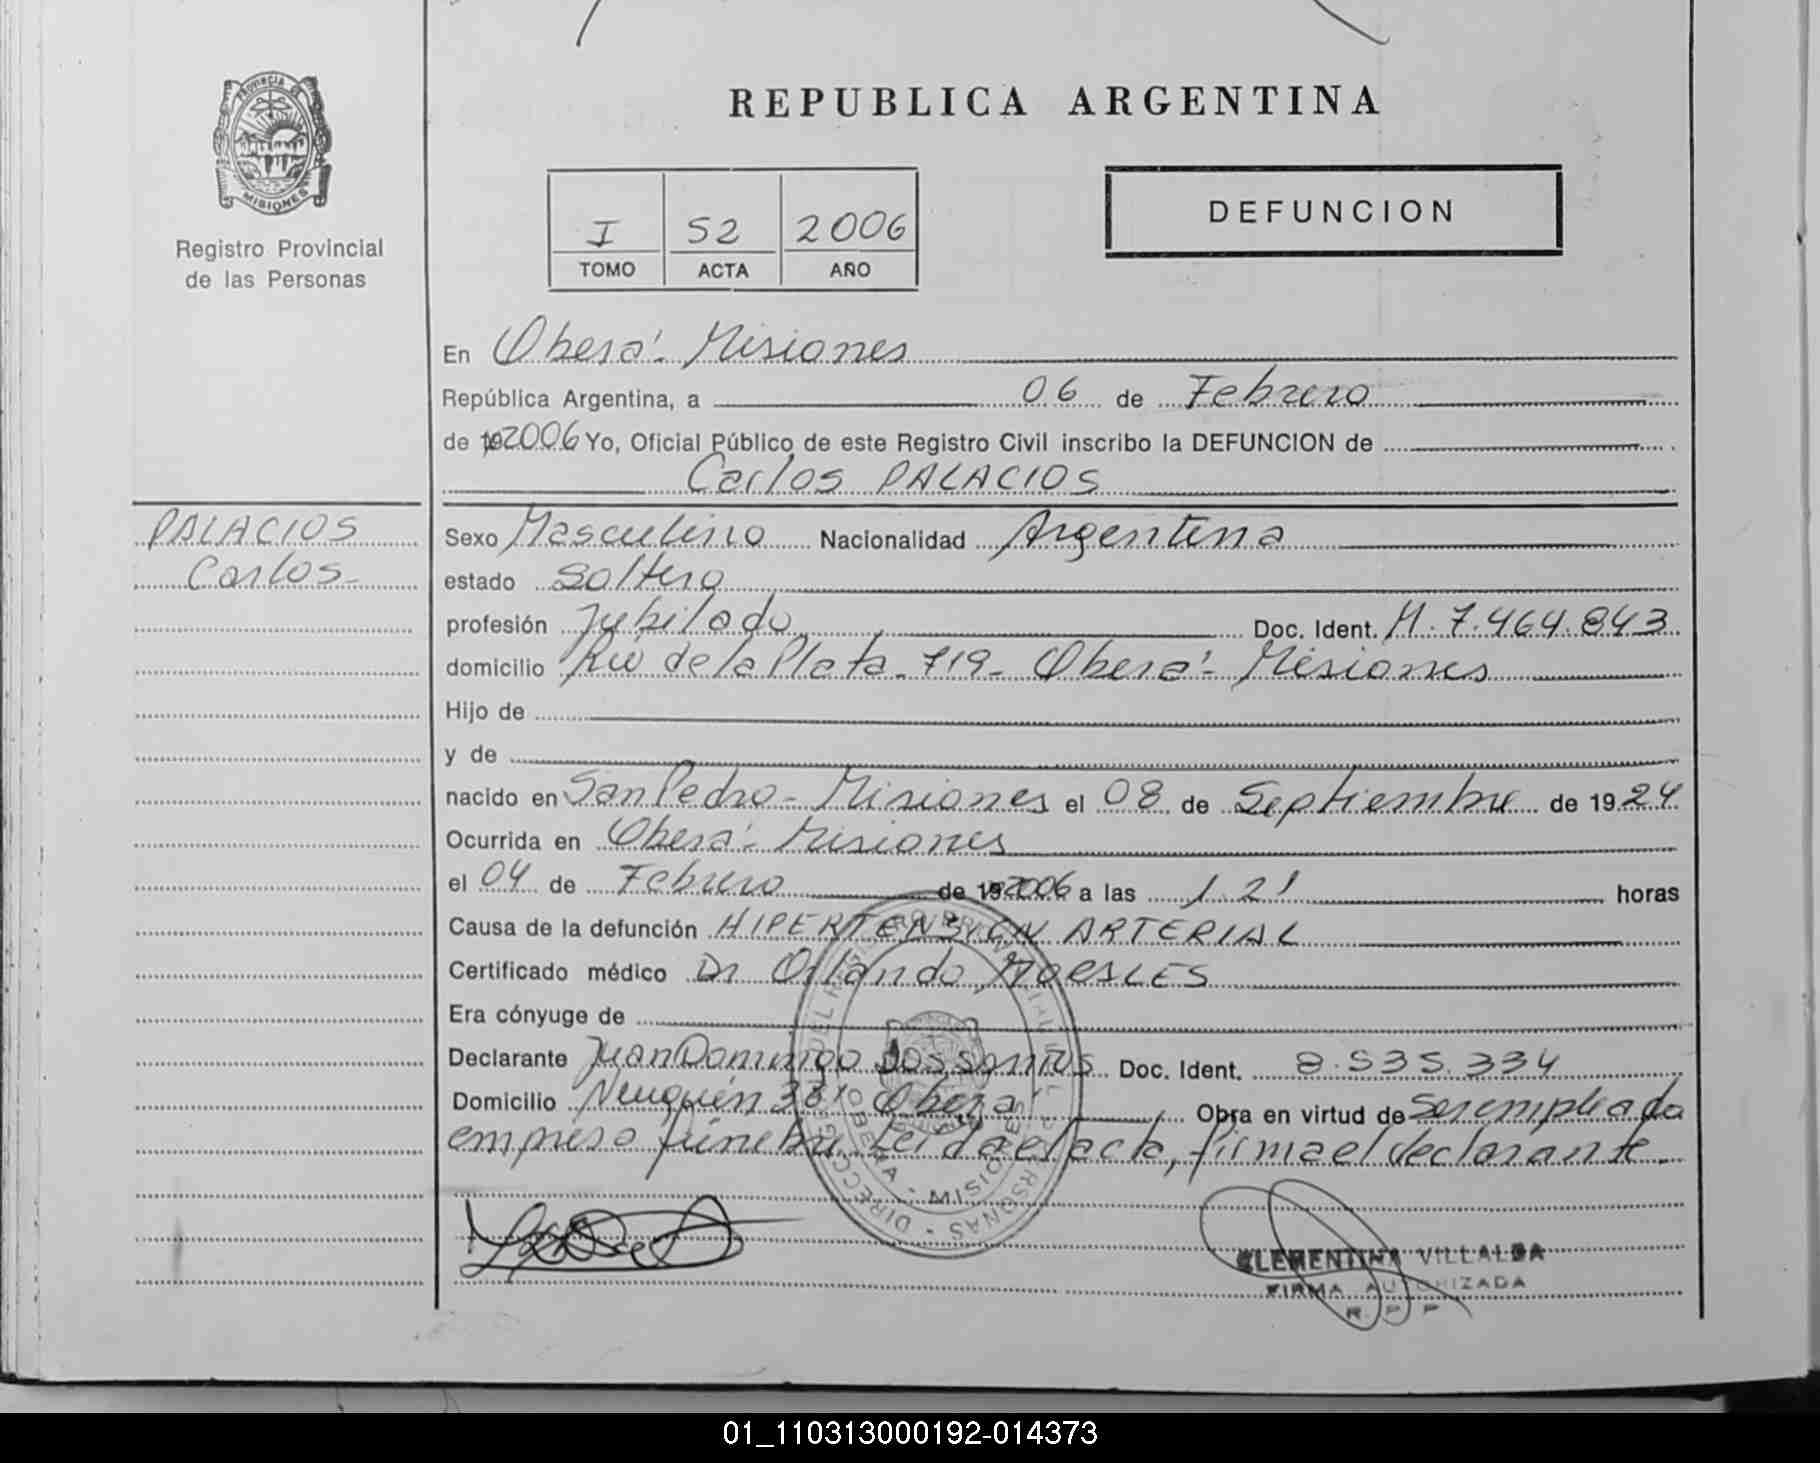 REPUBLICA ARGENTINA
PROVINCIA DE
MISIONES
Registro Provincial
de las Personas
I 52 2006
TOMO ACTA AÑO
DEFUNCION
En Oberá - Misiones
República Argentina, a 06 de Febrero
de 19 2006 Yo, Oficial Público de este Registro Civil inscribo la DEFUNCION de
Carlos PALACIOS
PALACIOS
Carlos-
Sexo Masculino Nacionalidad Argentina
estado Soltero
profesión Jubilado Doc. Ident. M. 7.464.843
domicilio Río de la Plata - 719 - Oberá - Misiones
Hijo de
y de
nacido en San Pedro - Misiones el 08 de Septiembre de 1924
Ocurrida en Oberá - Misiones
el 04 de Febrero de 19 2006 a las 1.21 horas
Causa de la defunción HIPERTENSIÓN ARTERIAL
Certificado médico Dr Orlando MORALES
Era cónyuge de
Declarante Juan Domingo Dos Santos Doc. Ident. 8.535.334
Domicilio Neuquén 381 Oberá Obra en virtud de Ser empleado
empresa fúnebre. Leída el acta, firma el declarante.
OBERA - MISIONES
CLEMENTINA VILLALBA
FIRMA AUTORIZADA
R. P. P
01_110313000192-014373